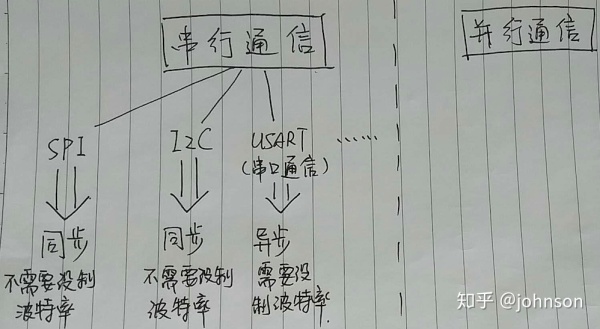 串行通信
并行通信
SPI
I2C
USART
(串口通信)
……
同步
不需要设制
波特率
同步
不需要设制
波特率
异步
需要设
制波特率.
知乎 @johnson